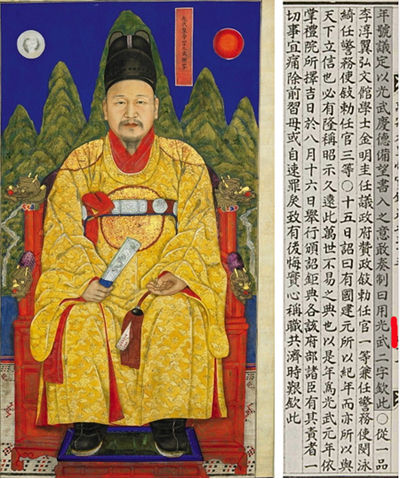 光武皇帝四十九歲御容
年號議定以光武慶德備望書入之意敢奏制曰用光武二字欽此〇從一品
李淳翼弘文館學士金明圭任議政府贊政敍勅任官一等兼任警務使閔泳
綺任警務使敍勅任官三等〇十五日詔曰有國建元所以紀年而亦所以與
天下立信也必有隆稱昭示久遠此萬世不易之典也以是年爲光武元年依
掌禮院所擇吉日於八月十六日舉行頒詔鉅典各該府部諸臣有其責者一
切事宜痛除前習毋或自速罪戾致有後悔實心稱職共濟時艱欽此